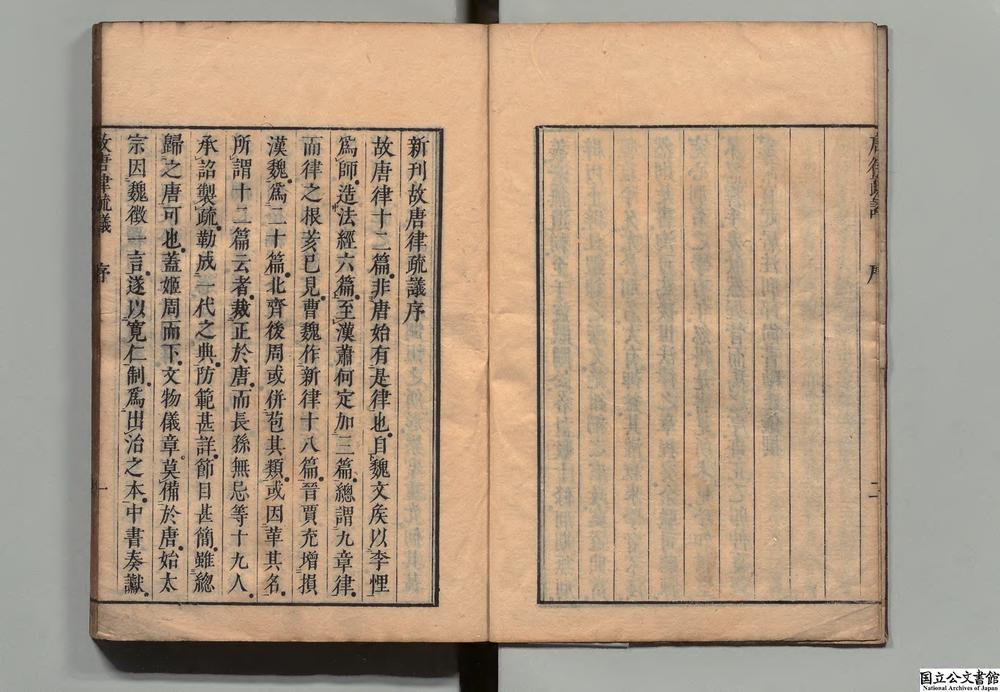 新刊故唐律疏議序
故唐律十二篇非唐始有是律也自魏文侯以李悝
爲師造法經六篇至漢蕭何定加三篇總謂九章律
而律之根荄已見曹魏作新律十八篇晉賈充增損
漢魏爲二十篇北齊後周或併苞其類或因革其名
所謂十二篇云者裁正於唐而長孫無忌等十九人
承詔製疏勒成一代之典防範甚詳節目甚簡雖總
歸之唐可也蓋姬周而下文物儀章莫備於唐始太
宗因魏徵一言遂以寛仁制爲出治之本中書奏讞
故唐律疏議 序 一
唐律疏議 序 二
国立公文書館
National Archives of Japan